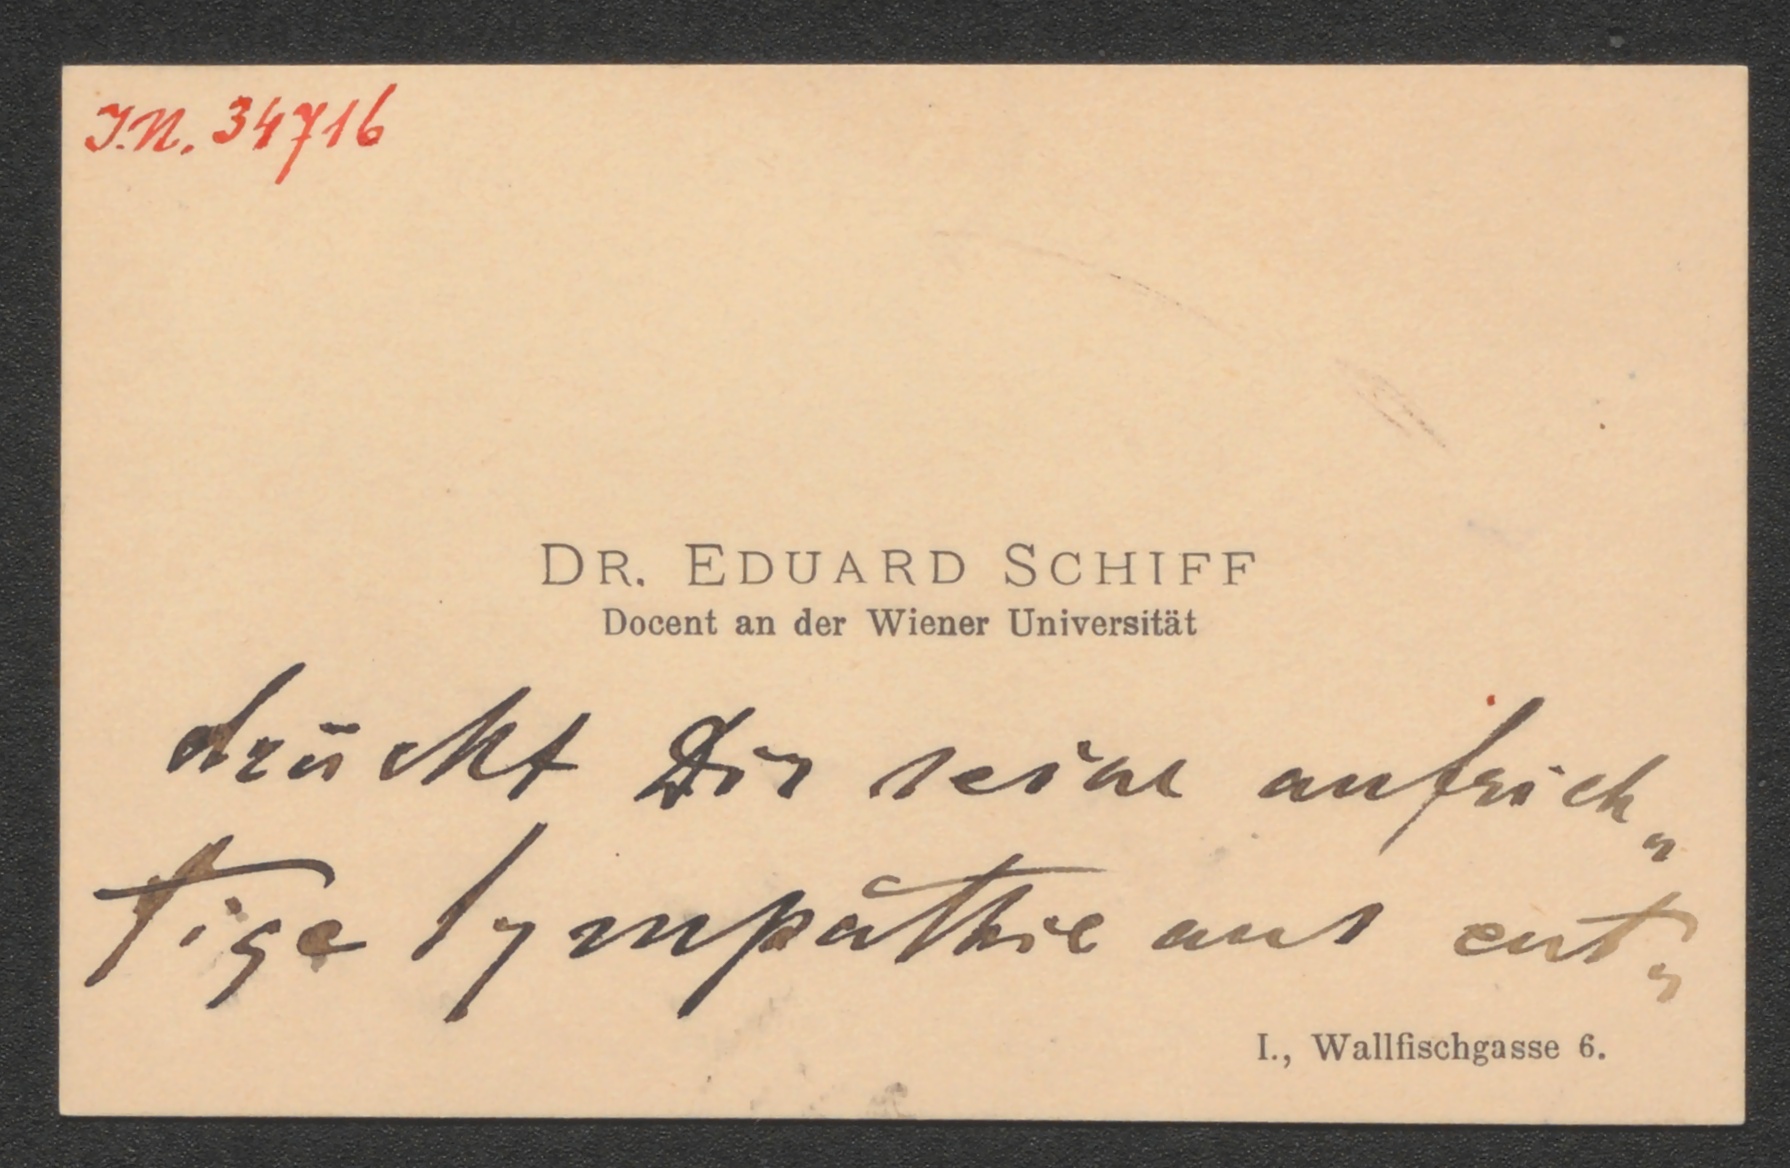 J.N. 34716
DR. EDUARD SCHIFF
Docent an der Wiener Universität
drückt Dir seine aufrich„
tige Sympathie aus ent„
I., Wallfischgasse 6.